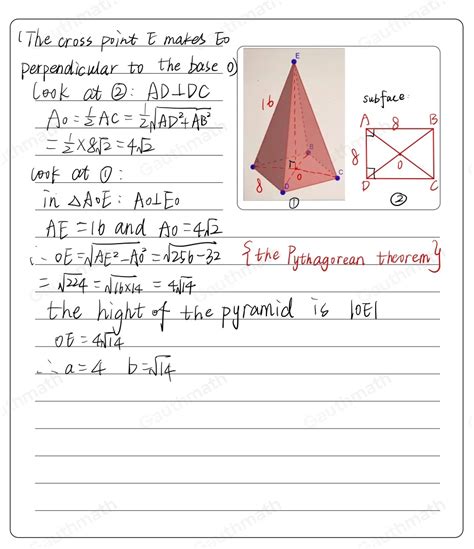 (The cross point E makes EO
perpendicular to the base O)
Look at ②: AD⊥DC
AO = 1/2 AC = 1/2 √AD²+AB²
= 1/2 × 8√2 = 4√2
look at ①:
in △AOE: AO⊥EO
AE = 16 and AO = 4√2
∴ OE = √AE²-AO² = √256-32 {the Pythagorean theorem}
= √224 = √16×14 = 4√14
the hight of the pyramid is |OE|
OE = 4√14
∴ a = 4 b = √14
E
16
B
O
8
D
C
①
subface:
A 8 B
8
O
D C
②
Gauthmath